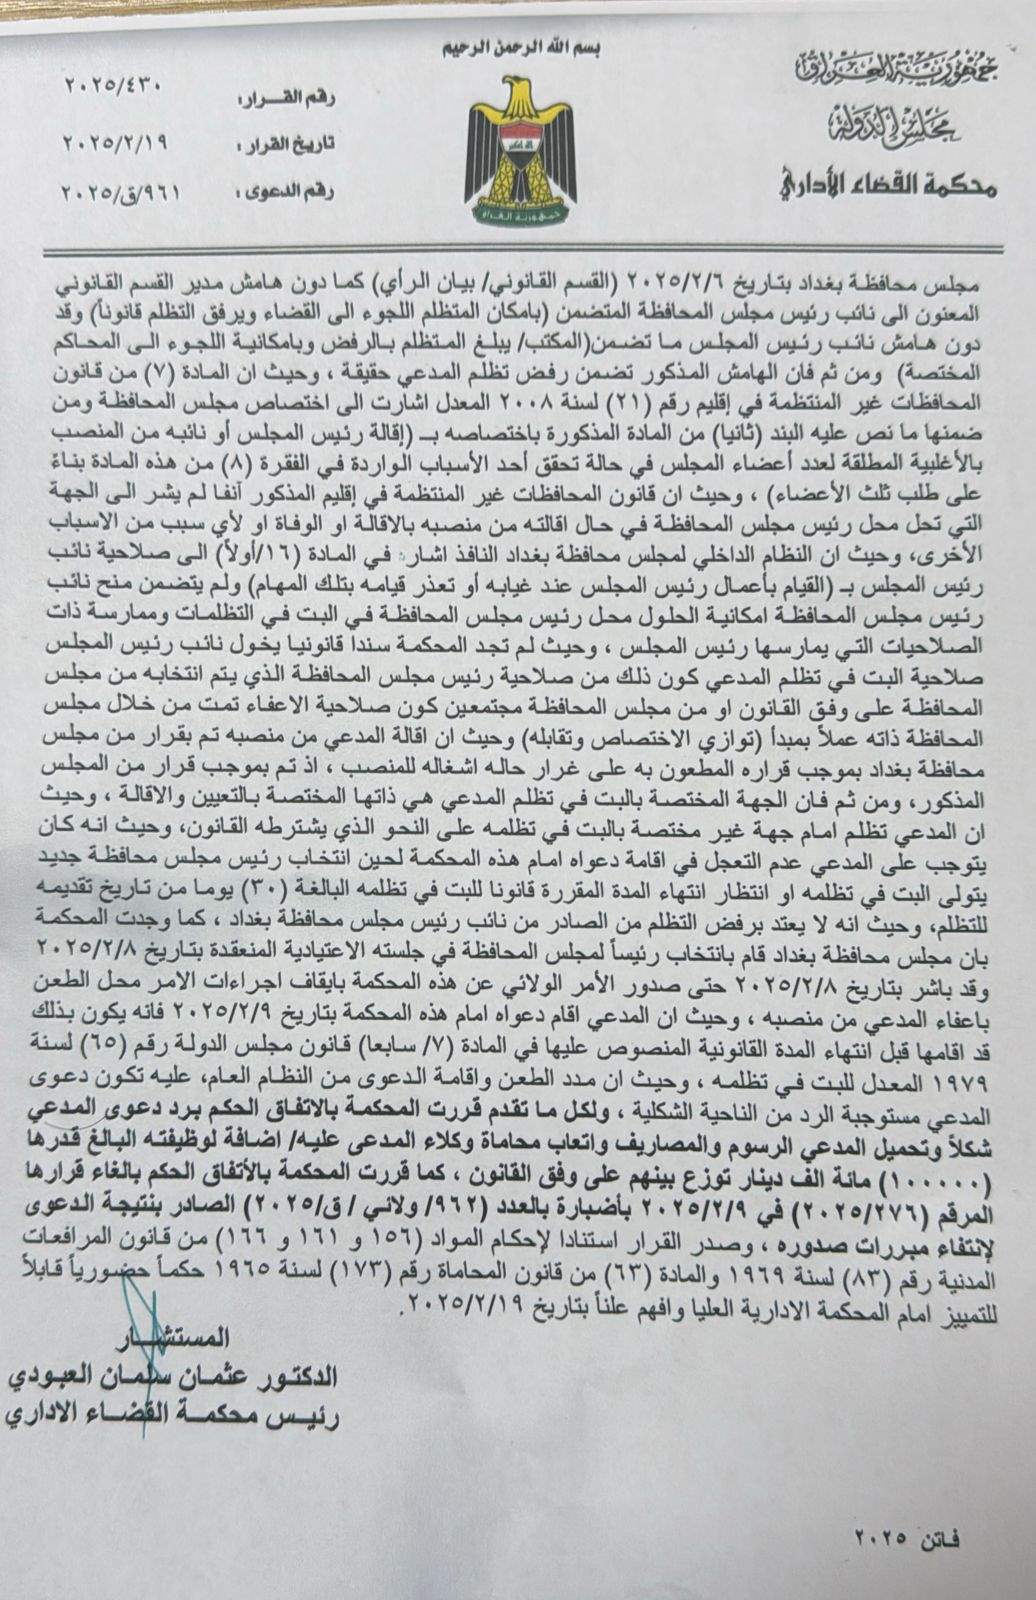 بسم الله الرحمن الرحيم
جمهورية العراق
مجلس الدولة
محكمة القضاء الأداري
رقم القـــرار: ٢٠٢٥/٤٣٠
تاريخ القرار : ٢٠٢٥/٢/١٩
رقم الدعوى : ٩٦١/ق/٢٠٢٥
جمهورية العراق
مجلس محافظة بغداد بتاريخ ٢٠٢٥/٢/٦ (القسم القانوني/ بيان الرأي) كما دون هامش مدير القسم القانوني
المعنون الى نائب رئيس مجلس المحافظة المتضمن (بامكان المتظلم اللجوء الى القضاء ويرفق التظلم قانوناً) وقد
دون هامش نائب رئيس المجلس ما تضمن(المكتب/ يبلغ المتظلم بالرفض وبامكانية اللجوء الى المحاكم
المختصة) ومن ثم فان الهامش المذكور تضمن رفض تظلم المدعي حقيقة ، وحيث ان المادة (٧) من قانون
المحافظات غير المنتظمة في إقليم رقم (٢١) لسنة ٢٠٠٨ المعدل اشارت الى اختصاص مجلس المحافظة ومن
ضمنها ما نص عليه البند (ثانيا) من المادة المذكورة باختصاصه بـ (إقالة رئيس المجلس أو نائبه من المنصب
بالأغلبية المطلقة لعدد أعضاء المجلس في حالة تحقق أحد الأسباب الواردة في الفقرة (٨) من هذه المادة بناءً
على طلب ثلث الأعضاء) ، وحيث ان قانون المحافظات غير المنتظمة في إقليم المذكور آنفا لم يشر الى الجهة
التي تحل محل رئيس مجلس المحافظة في حال اقالته من منصبه بالاقالة او الوفاة او لأي سبب من الاسباب
الأخرى، وحيث ان النظام الداخلي لمجلس محافظة بغداد النافذ اشار في المادة (١٦/أولاً) الى صلاحية نائب
رئيس المجلس بـ (القيام بأعمال رئيس المجلس عند غيابه أو تعذر قيامه بتلك المهام) ولم يتضمن منح نائب
رئيس مجلس المحافظة امكانية الحلول محل رئيس مجلس المحافظة في البت في التظلمات وممارسة ذات
الصلاحيات التي يمارسها رئيس المجلس ، وحيث لم تجد المحكمة سندا قانونيا يخول نائب رئيس المجلس
صلاحية البت في تظلم المدعي كون ذلك من صلاحية رئيس مجلس المحافظة الذي يتم انتخابه من مجلس
المحافظة على وفق القانون او من مجلس المحافظة مجتمعين كون صلاحية الاعفاء تمت من خلال مجلس
المحافظة ذاته عملاً بمبدأ (توازي الاختصاص وتقابله) وحيث ان اقالة المدعي من منصبه تم بقرار من مجلس
محافظة بغداد بموجب قراره المطعون به على غرار حاله اشغاله للمنصب ، اذ تم بموجب قرار من المجلس
المذكور، ومن ثم فان الجهة المختصة بالبت في تظلم المدعي هي ذاتها المختصة بالتعيين والاقالة ، وحيث
ان المدعي تظلم امام جهة غير مختصة بالبت في تظلمه على النحو الذي يشترطه القانون، وحيث انه كان
يتوجب على المدعي عدم التعجل في اقامة دعواه امام هذه المحكمة لحين انتخاب رئيس مجلس محافظة جديد
يتولى البت في تظلمه او انتظار انتهاء المدة المقررة قانونا للبت في تظلمه البالغة (٣٠) يوما من تاريخ تقديمه
للتظلم، وحيث انه لا يعتد برفض التظلم من الصادر من نائب رئيس مجلس محافظة بغداد ، كما وجدت المحكمة
بان مجلس محافظة بغداد قام بانتخاب رئيساً لمجلس المحافظة في جلسته الاعتيادية المنعقدة بتاريخ ٢٠٢٥/٢/٨
وقد باشر بتاريخ ٢٠٢٥/٢/٨ حتى صدور الأمر الولائي عن هذه المحكمة بايقاف اجراءات الامر محل الطعن
باعفاء المدعي من منصبه ، وحيث ان المدعي اقام دعواه امام هذه المحكمة بتاريخ ٢٠٢٥/٢/٩ فانه يكون بذلك
قد اقامها قبل انتهاء المدة القانونية المنصوص عليها في المادة (٧/ سابعا) قانون مجلس الدولة رقم (٦٥) لسنة
١٩٧٩ المعدل للبت في تظلمه ، وحيث ان مدد الطعن واقامة الدعوى من النظام العام، عليه تكون دعوى
المدعي مستوجبة الرد من الناحية الشكلية ، ولكل ما تقدم قررت المحكمة بالاتفاق الحكم برد دعوى المدعي
شكلاً وتحميل المدعي الرسوم والمصاريف واتعاب محاماة وكلاء المدعى عليه/ اضافة لوظيفته البالغ قدرها
(١٠٠٠٠٠) مائة الف دينار توزع بينهم على وفق القانون ، كما قررت المحكمة بالأتفاق الحكم بالغاء قرارها
المرقم (٢٠٢٥/٢٧٦) في ٢٠٢٥/٢/٩ بأضبارة بالعدد (٩٦٢/ ولائي / ق/٢٠٢٥) الصادر بنتيجة الدعوى
لإنتفاء مبررات صدوره ، وصدر القرار استنادا لإحكام المواد (١٥٦ و ١٦١ و ١٦٦) من قانون المرافعات
المدنية رقم (٨٣) لسنة ١٩٦٩ والمادة (٦٣) من قانون المحاماة رقم (١٧٣) لسنة ١٩٦٥ حكماً حضورياً قابلاً
للتمييز امام المحكمة الادارية العليا وافهم علناً بتاريخ ٢٠٢٥/٢/١٩.
المستشـــار
الدكتور عثمان سلمان العبودي
رئيس محكمة القضاء الاداري
فاتن ٢٠٢٥